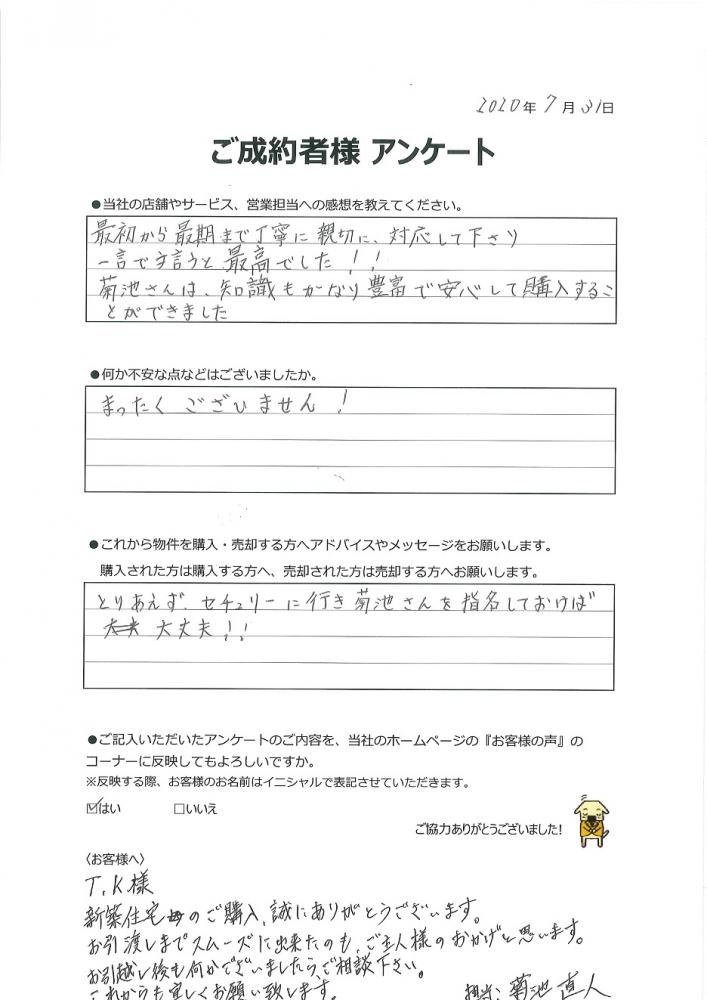 2020年7月31日
ご成約者様 アンケート
●当社の店舗やサービス、営業担当への感想を教えてください。
最初から最期まで丁寧に親切に、対応して下さり
一言で言うと最高でした!!
菊池さんは、知識もかなり豊富で安心して購入するこ
とができました
●何か不安な点などはございましたか。
まったくございません!
●これから物件を購入・売却する方へアドバイスやメッセージをお願いします。
購入された方は購入する方へ、売却された方は売却する方へお願いします。
とりあえず、セチュリーに行き菊池さんを指名しておけば
大丈夫!!
●ご記入いただいたアンケートのご内容を、当社のホームページの『お客様の声』の
コーナーに反映してもよろしいですか。
※反映する際、お客様のお名前はイニシャルで表記させていただきます。
☑はい □いいえ
ご協力ありがとうございました!
〈お客様へ〉
T.K様
新築住宅のご購入、誠にありがとうございます。
お引渡しまでスムーズに出来たのも、ご主人様のおかげと思います。
お引越し後も何かございましたら、ご相談下さい。
これからも宜しくお願い致します。 担当:菊池 直人